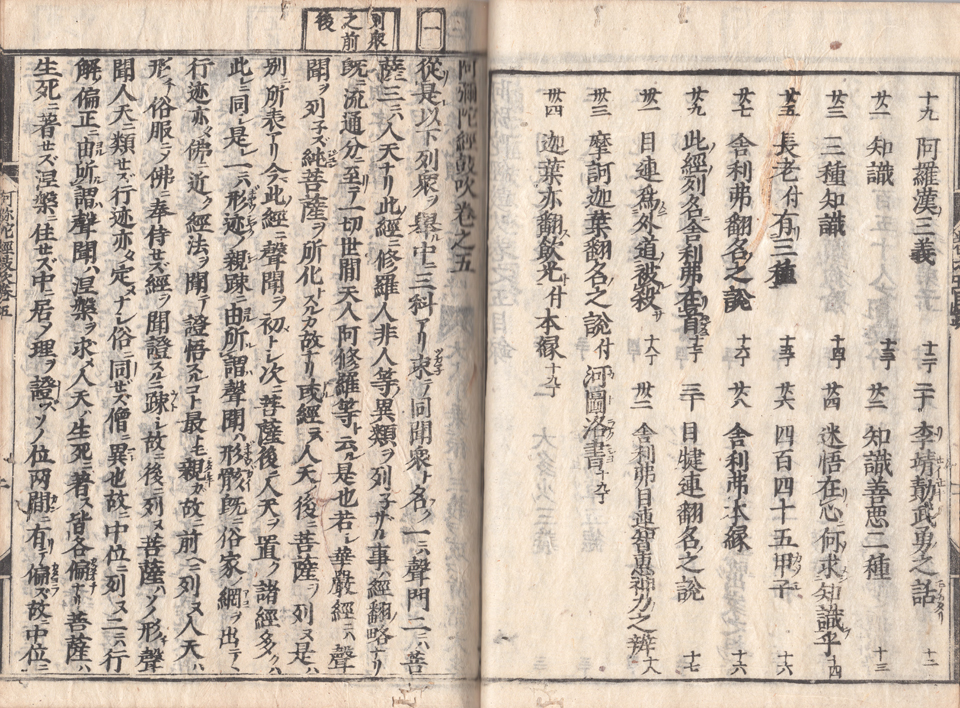 十九 阿羅漢三義 十二 二十 李靖勣武勇之話 十二
廿一 知識 十三 廿二 知識善悪二種 十三
廿三 三種知識 十四 廿四 迷悟在心何求知識乎 十四
廿五 長老付有三種 十五 廿六 四百四十五甲子 十六
廿七 舍利弗翻名之説 十六 廿八 舍利弗本縁 十六
廿九 此經列名舍利弗在首 十七 三十 目犍連翻名之説 十七
卅一 目連爲外道被殺 十八 卅二 舍利弗目連智恵神力之辨 十八
卅三 摩訶迦葉翻名之説付河圖洛書 十九
卅四 迦葉亦翻飲光付本縁 十九
一
列衆之前後
阿彌陀經鼓吹卷之五
從是以下列衆ヲ舉中三科アリ束テ同聞衆ト名ク一ニハ聲聞二ニハ菩
薩三ニハ人天ナリ此經ニ修羅人非人等異類ヲ列子サルハ事ハ經翻略ナリ
既ニ流通分ニ至テ一切世間天人阿修羅等ト云ル是也若シ華嚴經ニハ聲
聞ヲ列子ズ純菩薩ヲ所化トスルカ故ナリ或經ニハ人天ノ後ニ菩薩ヲ列ヌ是ハ
別ニ所表アリ今此經ニ聲聞ヲ初トシ次ニ菩薩後ニ人天ヲ置ク諸經多ク
此ニ同シ是ニ一ニハ形迹ノ親疎ニ由ル所謂聲聞ハ形骸既ニ俗家ノ網ヲ出テ
行迹亦タ佛ニ近ク經法ヲ聞テ證悟スルコト最モ親シ故ニ前ニ列ヌ人天ハ
形チ俗服ニシテ佛ニ奉侍セズ經ヲ聞證スルニ疎シ故ニ後ニ列ヌ菩薩ハソノ形チ聲
聞人天ニ類セズ行迹亦タ定メナシ俗ニ同セズ僧ニ異也故ニ中位ニ列ヌ二ニハ行
解ノ偏正ニ由ル所謂聲聞ハ涅槃ヲ求メ人天ハ生死ニ著ス皆各偏ナリ菩薩ハ
生死ニ著セズ涅槃ニ住セズ中居ノ理ヲ證ズソノ位両間ニ有テ偏ラズ故ニ中位ニ